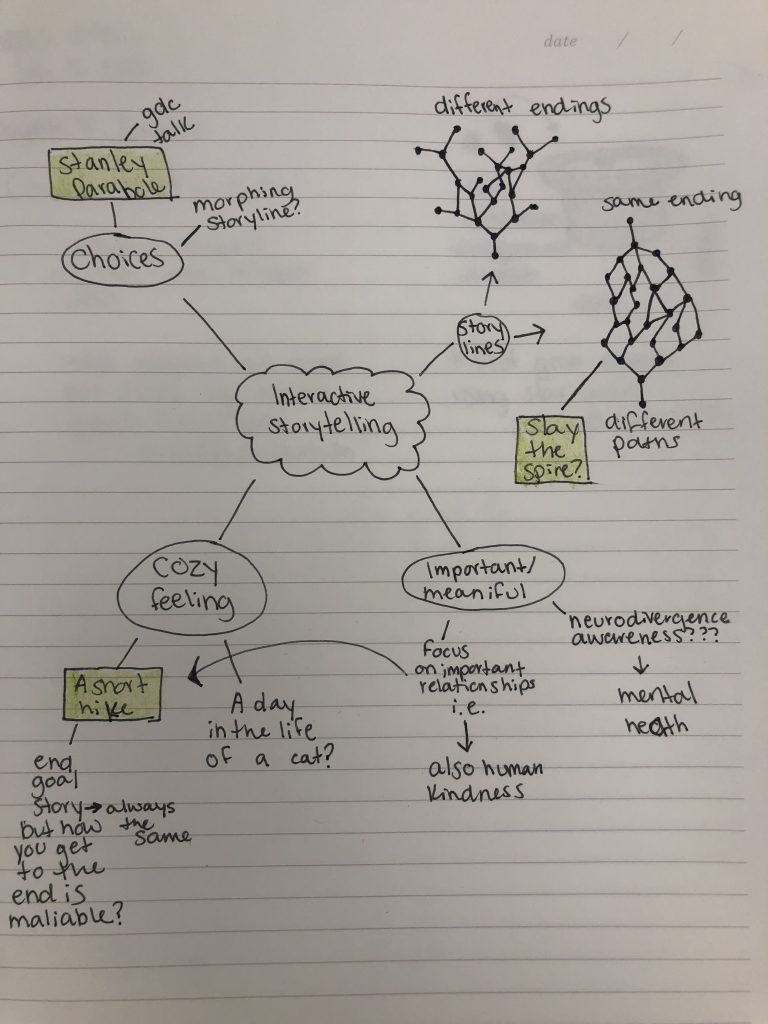 date / /
gdc
talk
Stanley
Parabole
morphing
storyline?
Choices
different endings
same ending
story
lines
Interactive
storytelling
Slay
the
spire?
different
paths
cozy
feeling
Important/
meaniful
neurodivergence
awareness???
mental
health
Focus
on important
relationships
i.e.
also human
kindness
A short
hike
A day
in the life
of a cat?
end
goal
story → always
but how the
you get same
to the
end is
maliable?